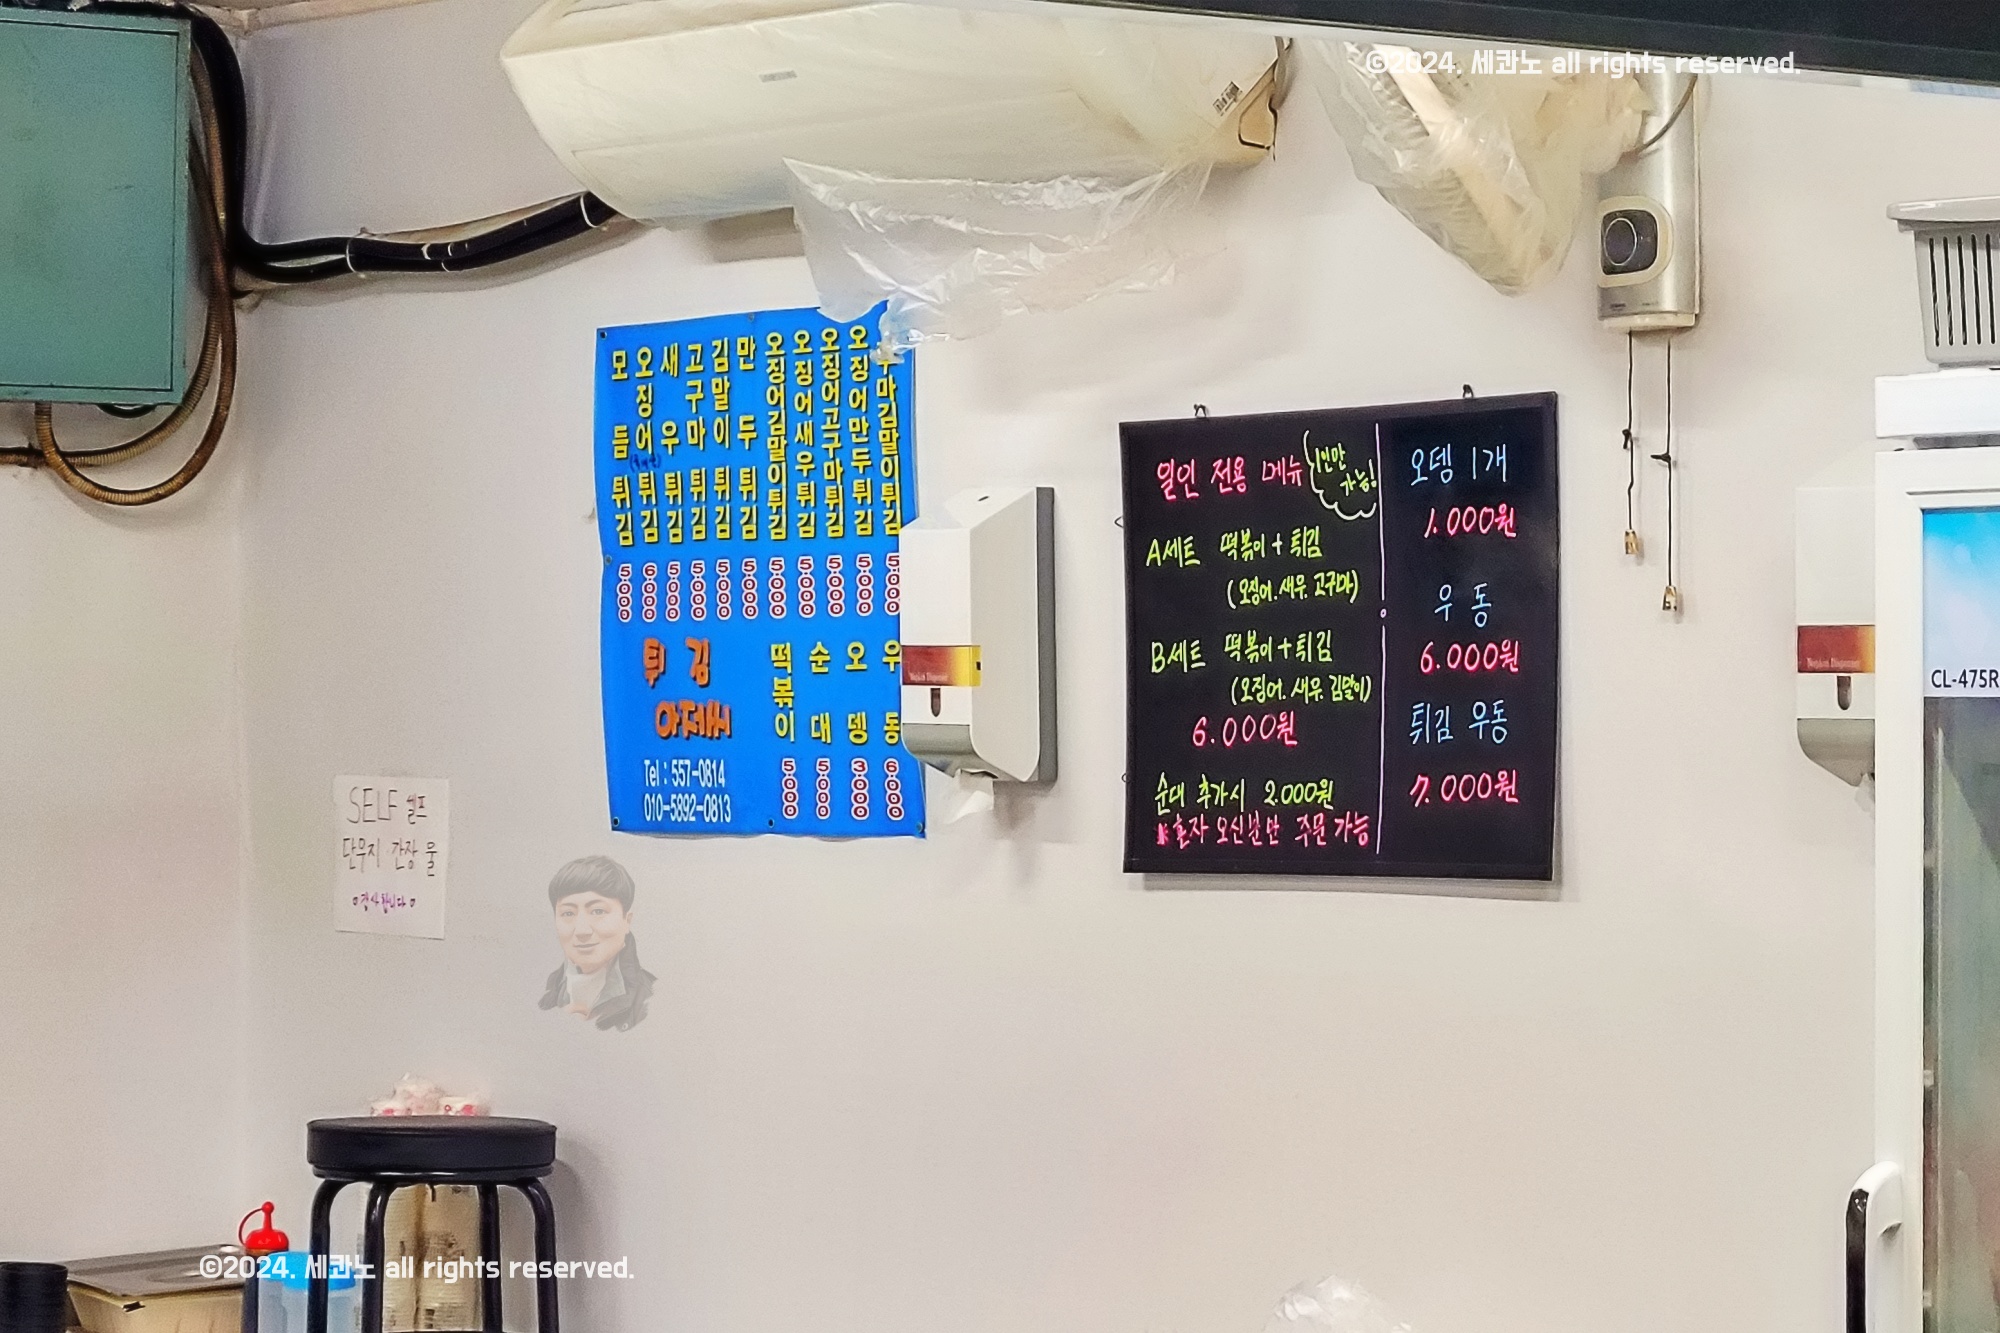 ©2024. 세콰노 all rights reserved.
모듬튀김 5000
오징어튀김 6000
새우튀김 5000
고구마튀김 5000
김말이튀김 5000
만두튀김 5000
오징어김말이튀김 5000
오징어새우튀김 5000
오징어고구마튀김 5000
오징어만두튀김 5000
튀김
아저씨
Tel : 557-0814
010-5892-0813
떡볶이 5000
순대 5000
오뎅 3000
우동 6000
Napkin Dispenser
일인 전용 메뉴
1인만
가능!
A세트 떡볶이 + 튀김
(오징어. 새우. 고구마)
B세트 떡볶이 + 튀김
(오징어. 새우. 김말이)
6.000원
순대 추가시 2.000원
※혼자 오신분만 주문 가능
오뎅 1개
1.000원
우동
6.000원
튀김 우동
7.000원
SELF 셀프
단무지 간장 물
감사합니다
Napkin Dispenser
CL-475R
©2024. 세콰노 all rights reserved.